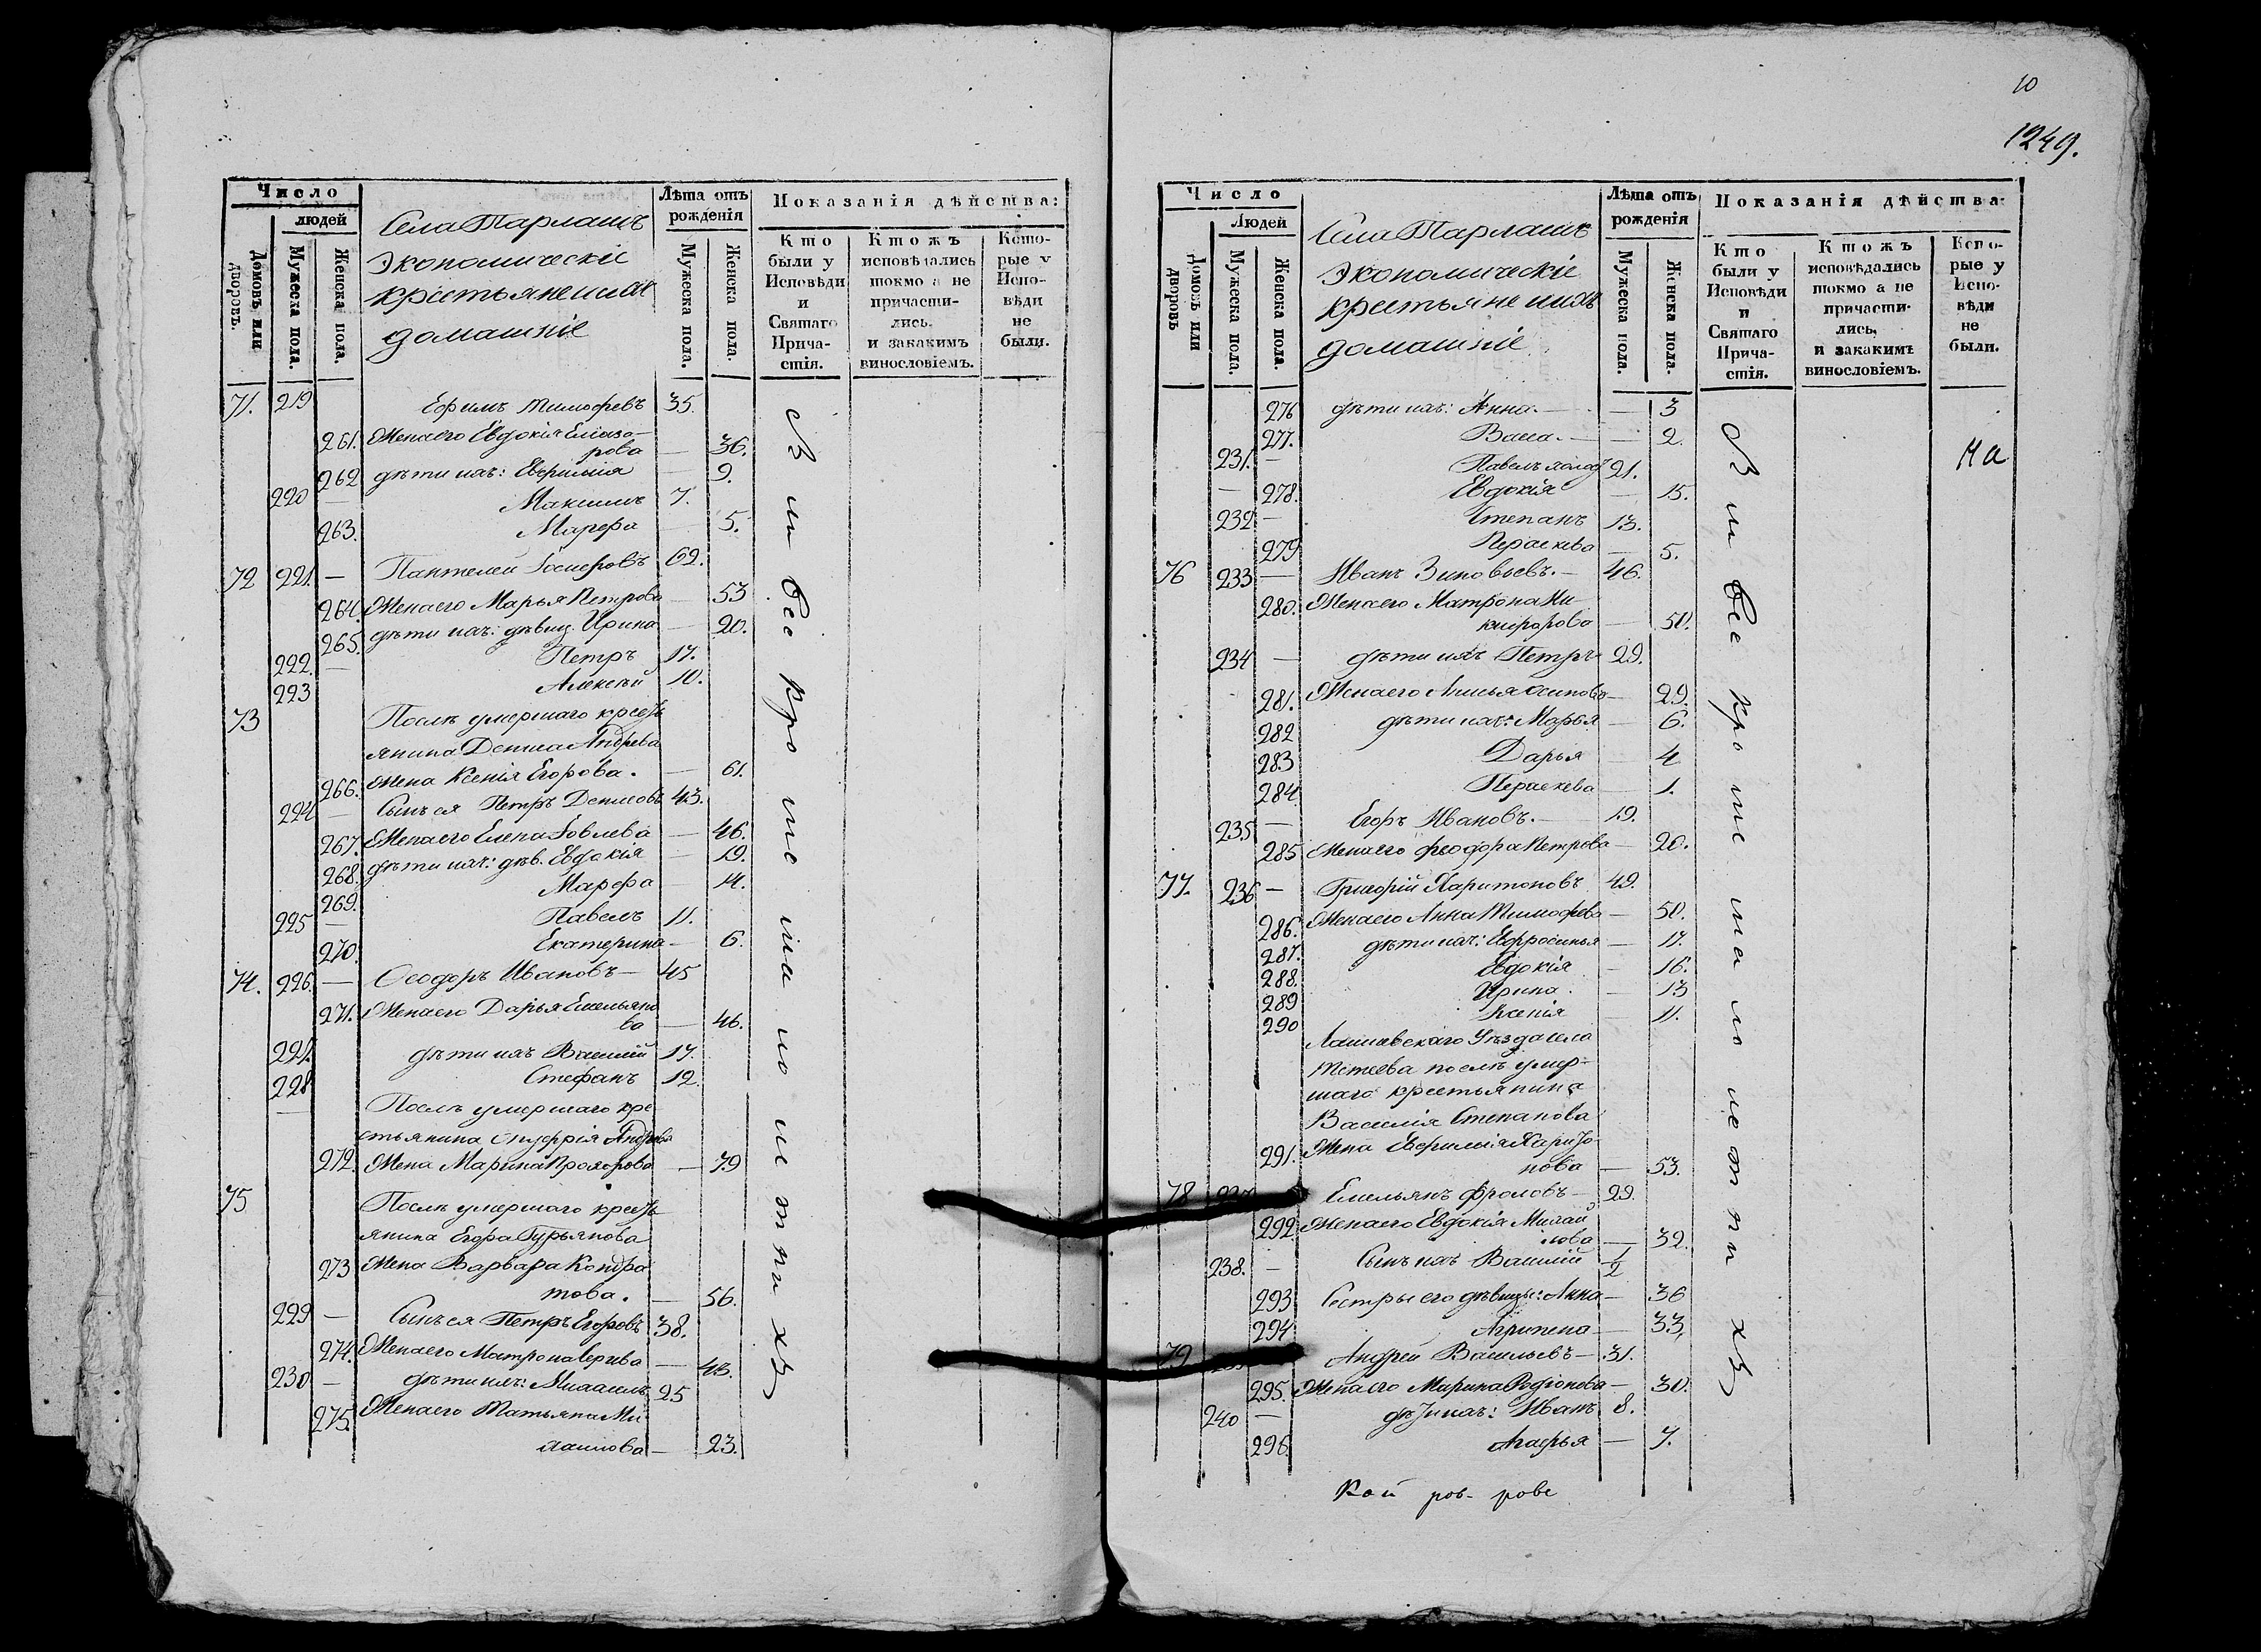 Число
людей
Домовъ или дворовъ.
Мужеска пола.
Женска пола.
Села Тарлашъ
экономическіе
крестьяне ихъ
домашніе
Лѣта отъ рожденія
Мужеска пола.
Женска пола.
Показанія дѣйства:
Кто были у Исповѣди и Святаго Причастія.
Ктожъ исповѣдались токмо а не причастились. и закакимъ винословіемъ.
Которые у Исповѣди не были.
71. 219 Ефимъ Тимофевъ 35.
261. Жена его Евдокія Елиза-
рова — 36.
262 дѣти ихъ: Евфимія — 9.
220 — Максимъ 7.
263. Марфа — 5.
72 221. — Пантелей 62.
264. Жена его Марья Петрова — 53
265. дѣти ихъ: дѣвиц. Ирина — 20.
222. — Петръ 17.
223 Алексѣй 10.
73 Послѣ умершаго кресть
янина Дениса Андрева
266. Жена Ксенія Егорова. — 61.
224 — Сынъ ея Петръ Денисовъ 43.
267. Жена его Елена Іовлева — 46.
268. дѣти ихъ: дѣв. Евдокія — 19.
269. Марфа — 14.
225 — Павелъ 11.
270. Екатерина — 6.
74. 226. — Феодоръ Ивановъ — 45
271. Жена его Дарья Емельяно
ва — 46.
227. дѣти ихъ Василій 17.
228 Стефанъ 12.
Послѣ умершаго кре
стьянина Онуфрія Андрева
272. Жена Марина Прохорова — 79
75 Послѣ умершаго кресть
янина Егора Гурьянова
273 Жена Варвара Кондра
това. — 56.
229 — Сынъ ея Петръ Егоровъ 38.
274. Жена его Матрона Сергева — 43.
230 — дѣти ихъ: Михаилъ 25
275. Жена его Татьяна Ми-
хаилова — 23.
всѣ
10
1249.
Число
Людей
Домовъ или дворовъ
Мужеска пола.
Женска пола.
Села Тарлашъ
экономическіе
крестьяне ихъ
домашніе
Лѣта отъ рожденія
Мужеска пола.
Женска пола.
Показанія дѣйства:
Кто были у Исповѣди и Святаго Причастія.
Ктожъ исповѣдались токмо а не причастились, и закакимъ винословіемъ.
Которые у Исповѣди не были.
276 дѣти ихъ: Анна. — 3
277. Васса. — 2.
231. — Павелъ холос 21. На
— 278. Евдокія — 15.
232 — Степанъ 13.
279 Параскева — 5.
76 233 — Иванъ Зиновьевъ. — 46.
280. Жена его Матрона Ни-
кифорова — 50.
234 — дѣти ихъ Петръ 29.
281. Жена его Анисья Осипова — 29.
282 дѣти ихъ: Марья — 6.
283 Дарья — 4
284 Параскева — 1.
235 — Егоръ Ивановъ. — 19.
285 Жена его Феодора Петрова — 20.
77. 236 — Григорій Харитоновъ 49.
286. Жена его Анна Тимофева — 50.
287. дѣти ихъ: Евфросинья — 17.
288. Евдокія — 16.
289 Ирина. — 13
290 Ксенія — 11.
Лаишевскаго Уѣзда села
послѣ умер-
шаго крестьянина
Василія Степанова
291. Жена Евфимія Харито-
нова — 53.
78 237 Емельянъ Фроловъ — 29.
292. Жена его Евдокія Михай
лова — 32.
238. — Сынъ ихъ Василій 1/2
293 Сестры его дѣвицы: Анна — 36
294 Агрипена — 33,
79 Андрей Васильевъ — 31.
295. Жена его Марина Родіонова — 30.
240 — дѣти ихъ: Иванъ 8.
296. Агафья — 7.